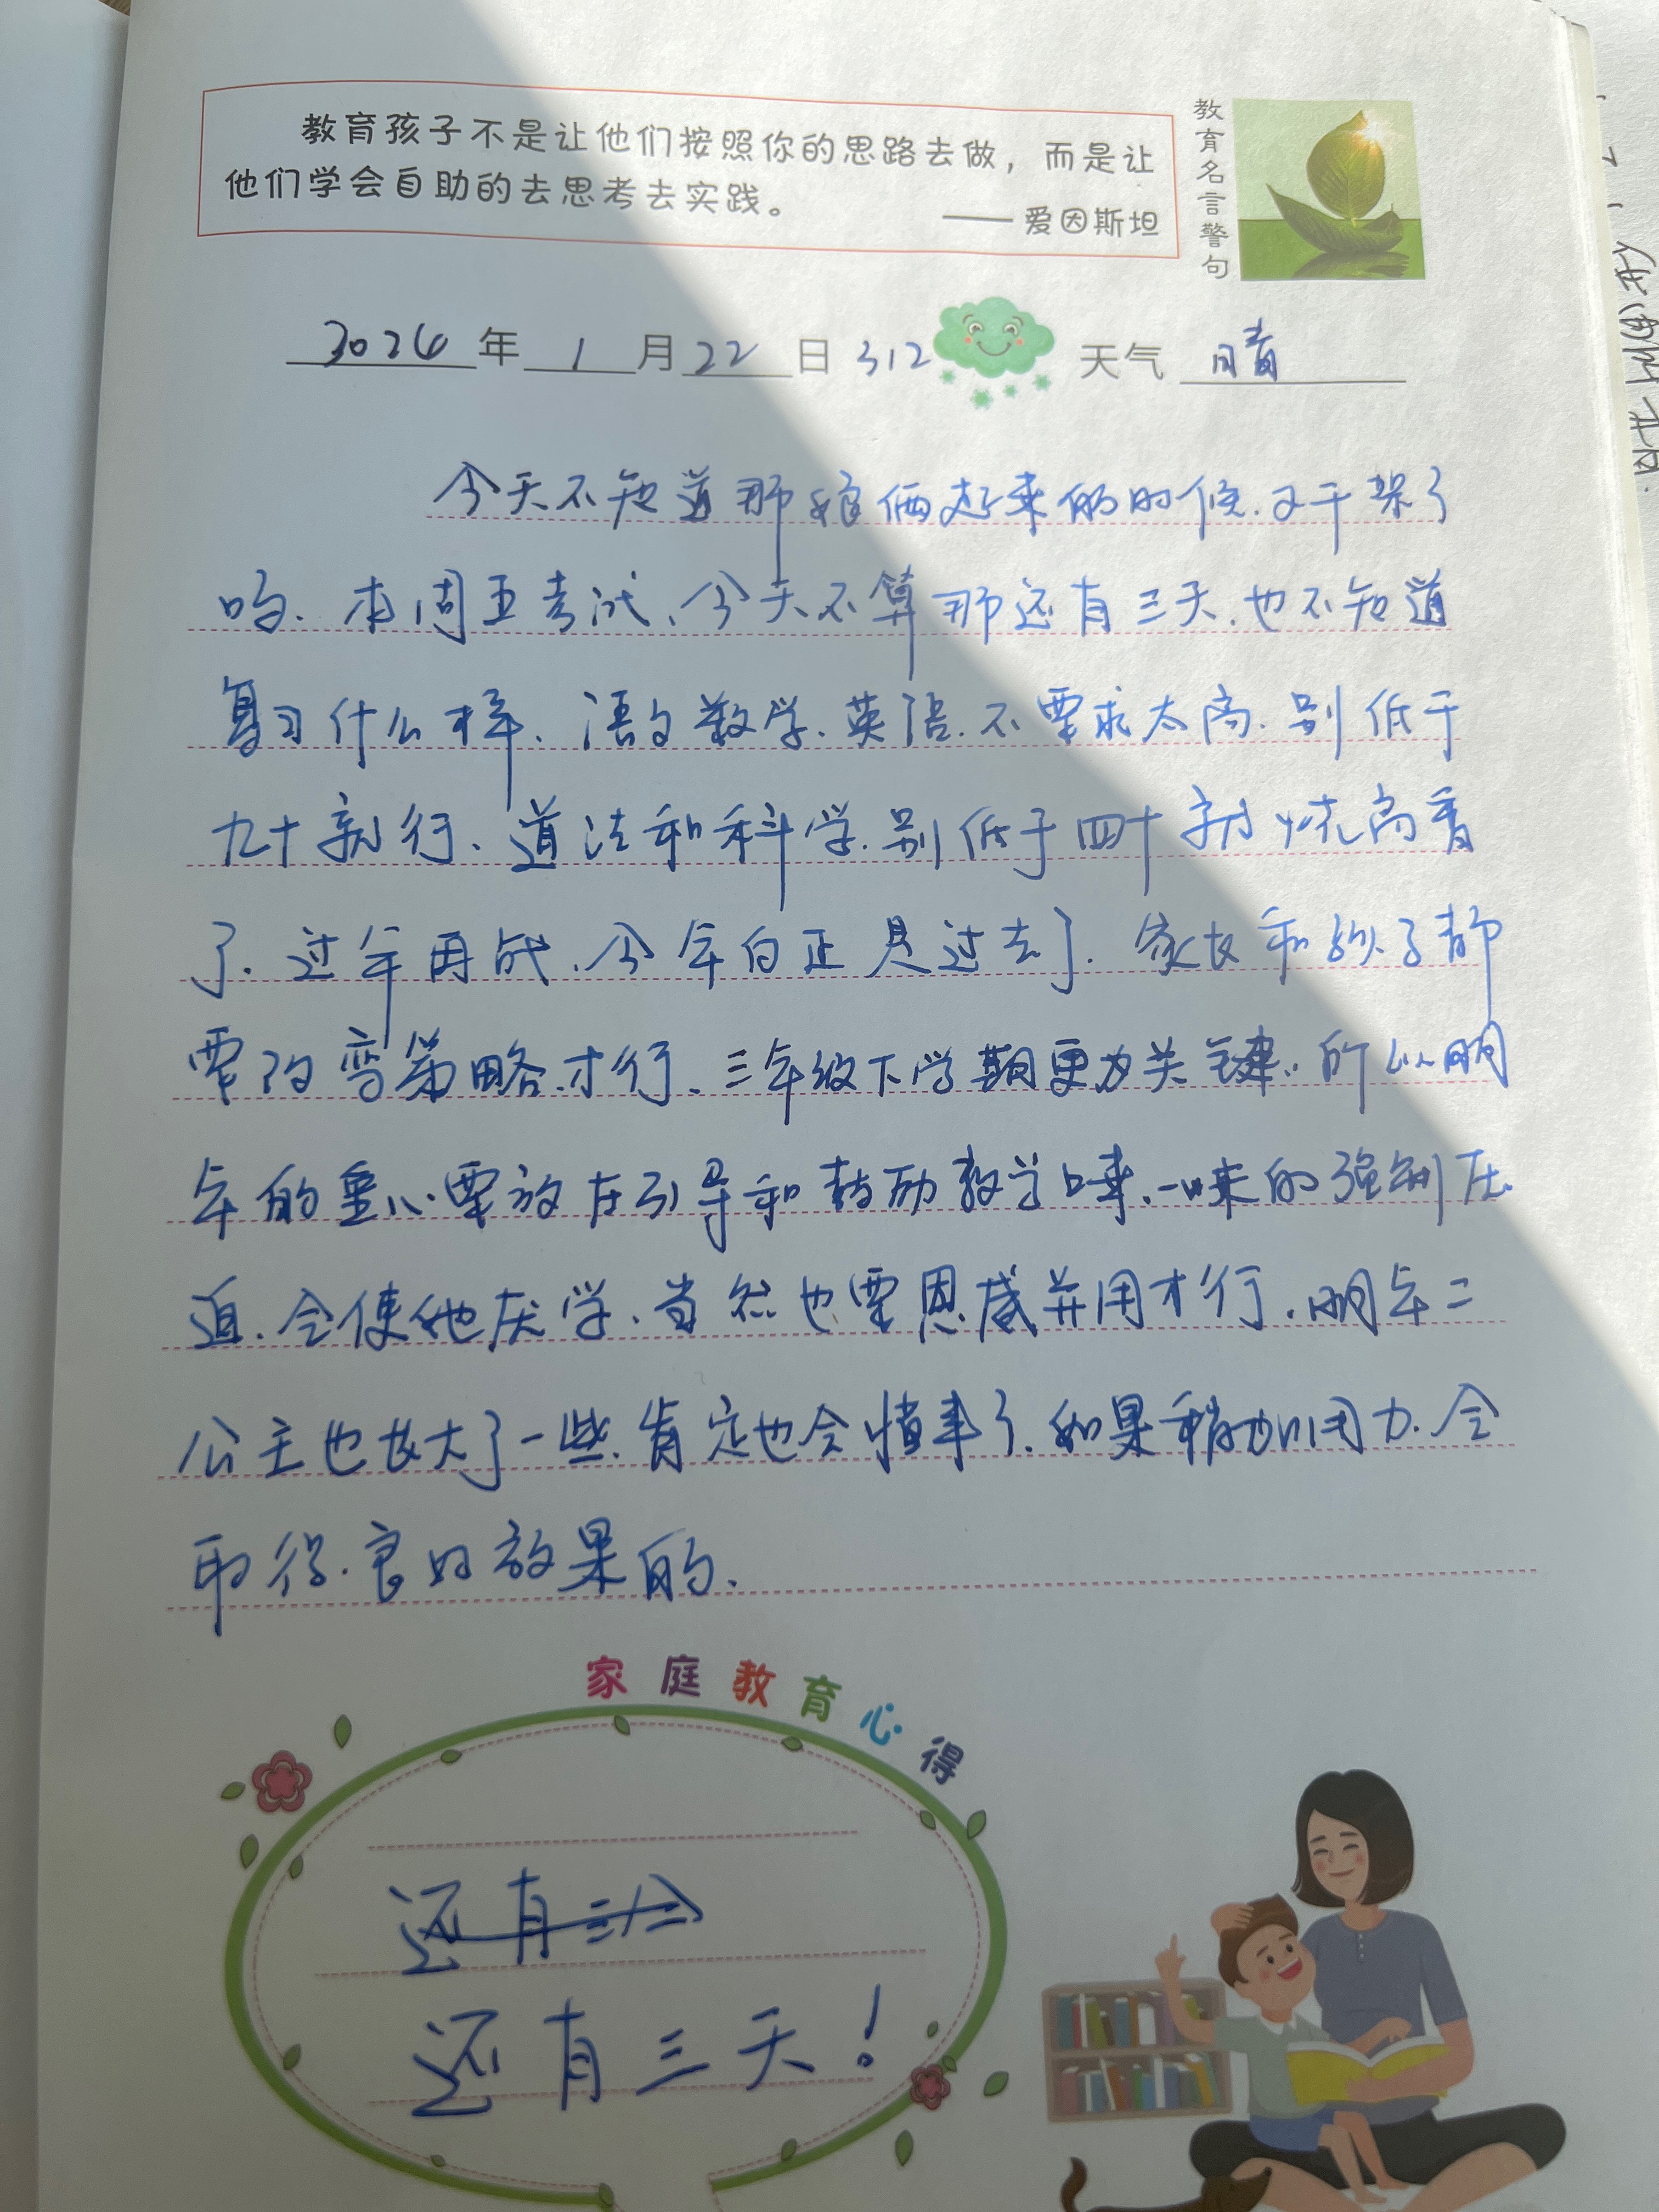 教育孩子不是让他们按照你的思路去做，而是让
他们学会自助的去思考去实践。
——爱因斯坦
教育名言警句
2024年1月22日 312 天气 晴
今天不知道那娘俩起来的时候.又干架了
吗.本周五考试、今天不算那还有三天.也不知道
复习什么样、语文数学.英语.不要求太高.别低于
九十就行、道法和科学.别低于四十就烧高香
了.过年再战、今年白正是过去了.家长和孩子都
要改变策略才行、三年级下学期更为关键.所以明
年的重心要放在引导和鼓励教学上来.一味的强制压
迫.会使她厌学、当然也要恩威并用才行.明年二
公主也长大了一些.肯定也会懂事了.如果稍加用力.会
取得.良好效果的.
家庭教育心得
还有三
还有三天！